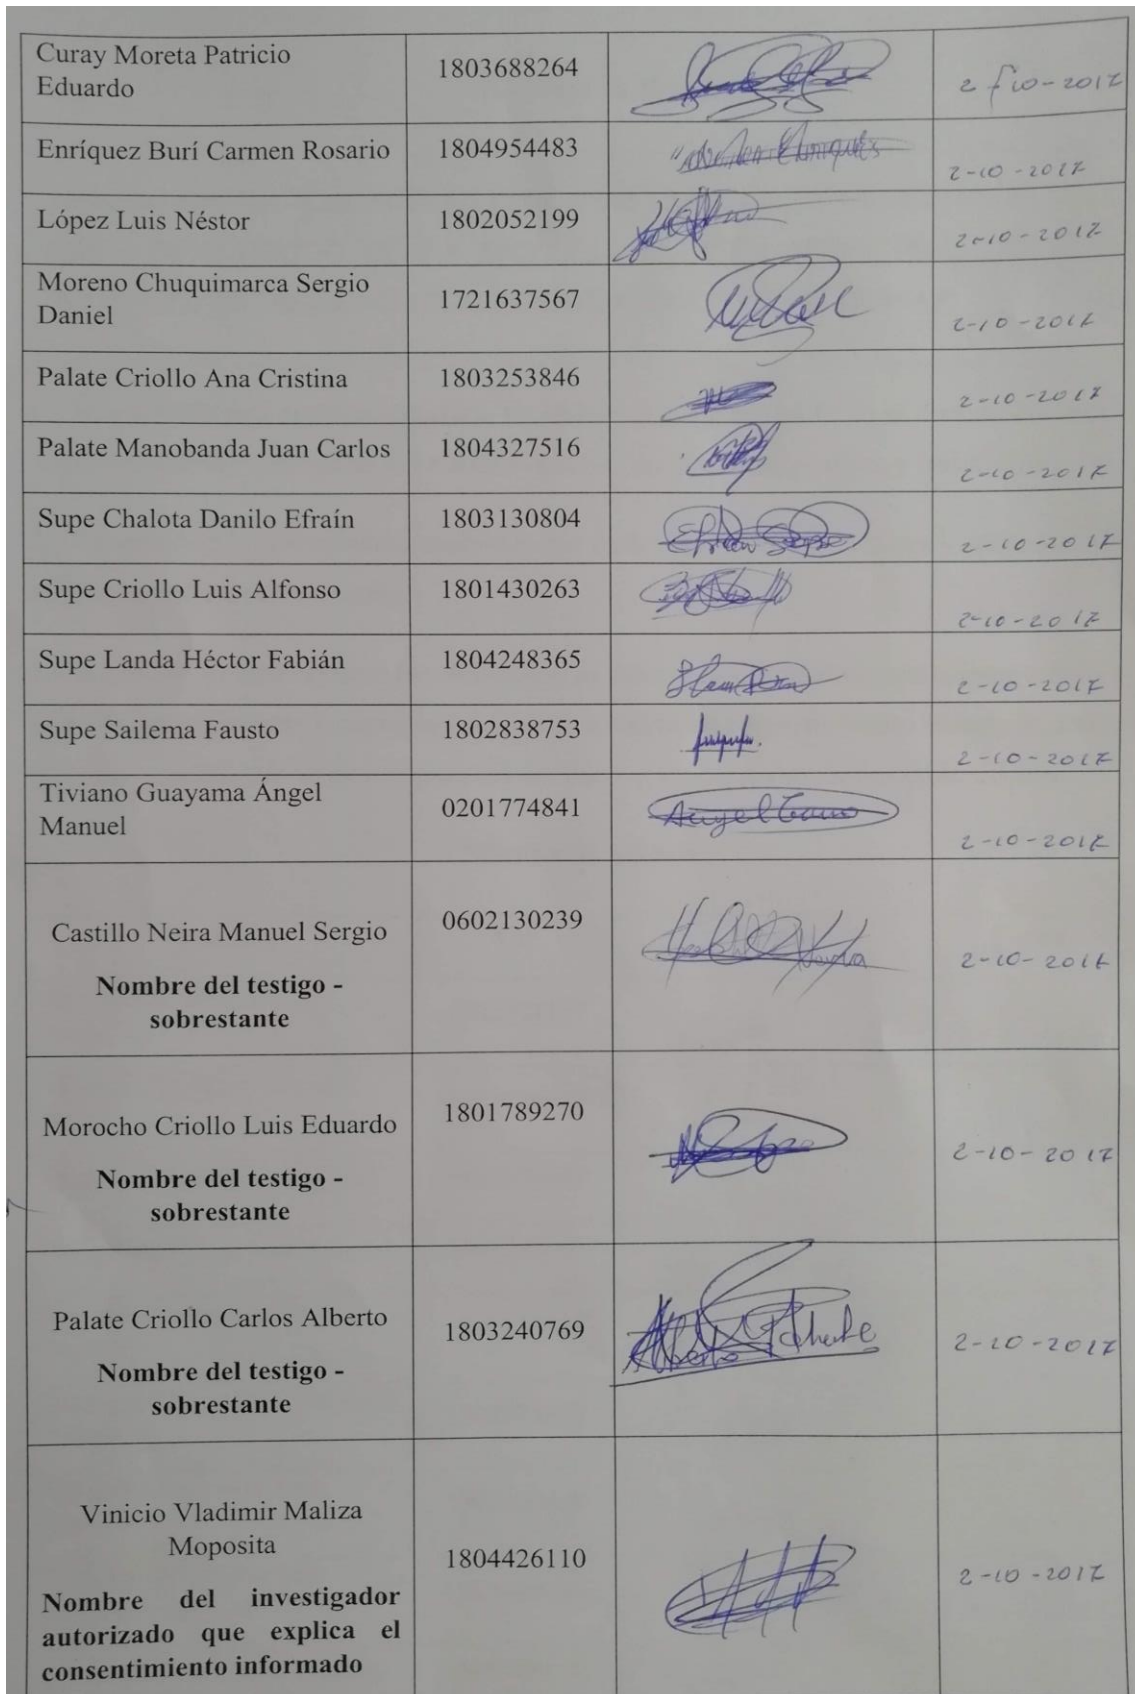 Curay Moreta Patricio
Eduardo
1803688264
2-10-2017
Enríquez Burí Carmen Rosario
1804954483
2-10-2017
López Luis Néstor
1802052199
2-10-2017
Moreno Chuquimarca Sergio
Daniel
1721637567
2-10-2017
Palate Criollo Ana Cristina
1803253846
2-10-2017
Palate Manobanda Juan Carlos
1804327516
2-10-2017
Supe Chalota Danilo Efraín
1803130804
2-10-2017
Supe Criollo Luis Alfonso
1801430263
2-10-2017
Supe Landa Héctor Fabián
1804248365
2-10-2017
Supe Sailema Fausto
1802838753
2-10-2017
Tiviano Guayama Ángel
Manuel
0201774841
Angel
2-10-2017
Castillo Neira Manuel Sergio
Nombre del testigo -
sobrestante
0602130239
2-10-2017
Morocho Criollo Luis Eduardo
Nombre del testigo -
sobrestante
1801789270
2-10-2017
Palate Criollo Carlos Alberto
Nombre del testigo -
sobrestante
1803240769
2-10-2017
Vinicio Vladimir Maliza
Moposita
Nombre del investigador
autorizado que explica el
consentimiento informado
1804426110
2-10-2017